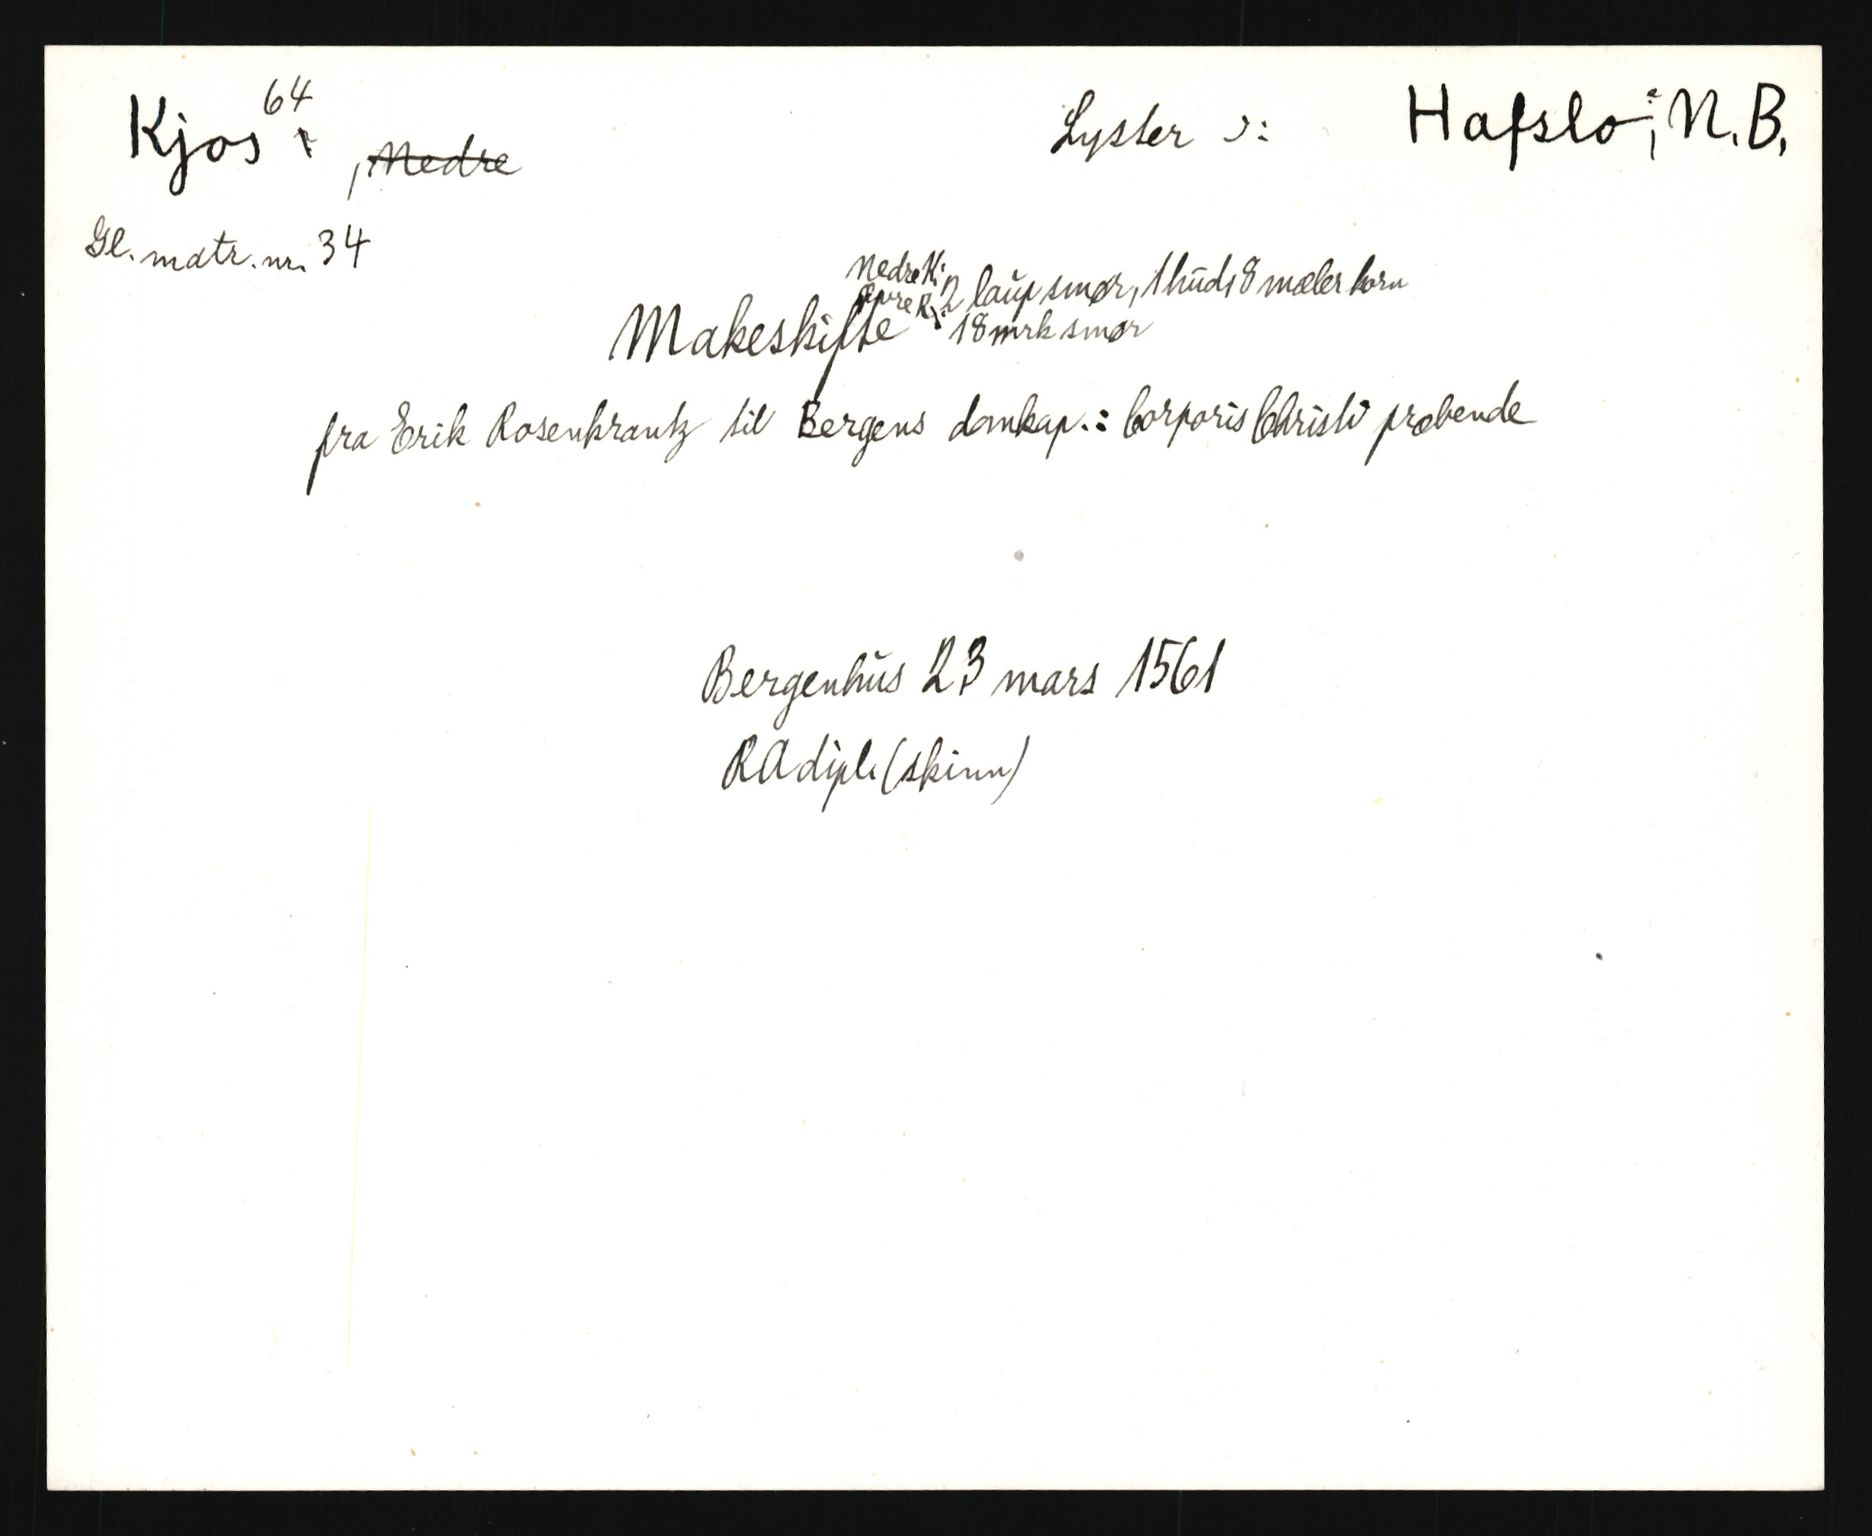 Kjos 64, Nedre Lyster ɔ: Hafslo, N.B.
Gl. matr. nr. 34
Nedre K: 2 laup smør, 1 hud, 8 mæler korn
Makeskifte Øvre K: 18 mrk smør
fra Erik Rosenkrantz til Bergens domkap.: Corporis Christi præbende
Bergenhus 23 mars 1561
RA dipl. (skinn)